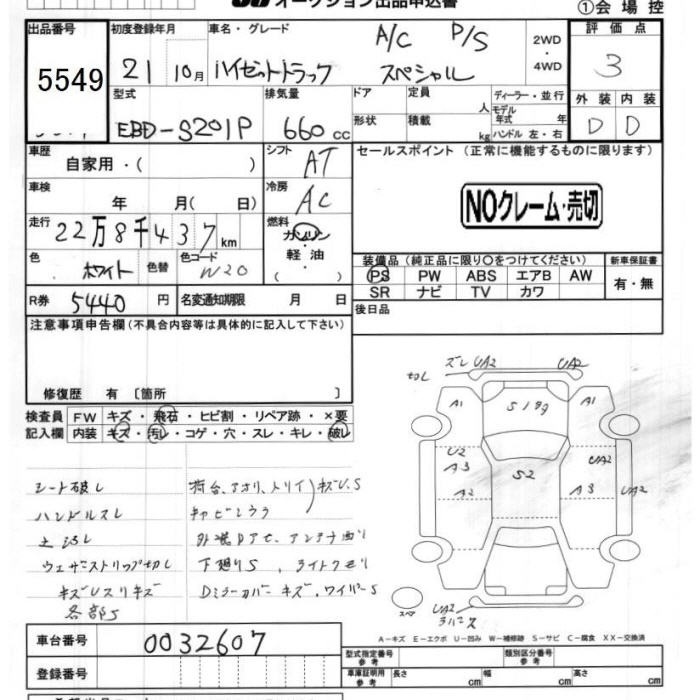 オークション出品申込書
①会場控
出品番号 初度登録年月 車名・グレード 評価点
5549 21 10月 ハイゼットトラック A/C P/S スペシャル 2WD・4WD 3
型式 排気量 ドア 定員 人 ディーラー・並行 外装 内装
EBD-S201P 660cc 形状 積載 kg モデル年式 年 ハンドル 左・右 D D
車歴 自家用・( ) シフト AT セールスポイント (正常に機能するものに限ります)
車検 年 月( 日) 冷房 AC
NOクレーム・売切
走行 22万8千437km 燃料 ガソリン・軽油 ( )
色 ホワイト 色替 色コード W20
装備品 (純正品に限り○をつけてください) 新車保証書
PS PW ABS エアB AW 有・無
SR ナビ TV カワ
R券 5440円 名変通知期限 月 日 後日品
注意事項申告欄 (不具合内容等は具体的に記入して下さい)
修復歴 有 〔箇所 〕
検査員 FW キズ・飛石・ヒビ割・リペア跡・×要
記入欄 内装 キズ・汚レ・コゲ・穴・スレ・キレ・破レ
シート破レ
ハンドルスレ
ウェザーストリップ切レ
各部S
荷台、アオリ、トリイ キズU、S
下廻りS、ライトクモリ
Dミラーカバーキズ、ワイパーS
切レ ズレ UA2 UA2
A1 A1
U2 A3 S2 UA2
A2 A3 UA2
スペア UA2
A-キズ E-エクボ U-凹み W-補修跡 S-サビ C-腐食 XX-交換済
車台番号 0032607
登録番号
型式指定番号 参考 類別区分番号 参考
車庫証明用 参考 長さ cm 幅 cm 高さ cm